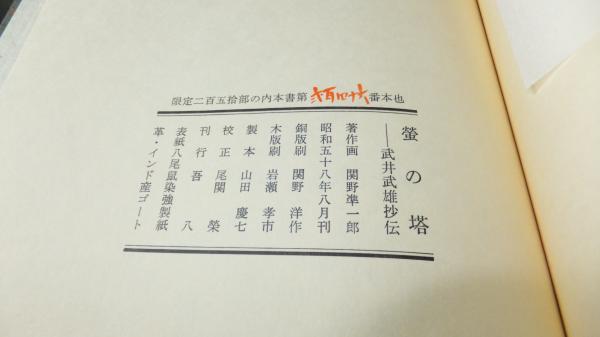 限定二百五拾部の内本書第弐百四十六番本也
螢の塔
――武井武雄抄伝
著作画 関野凖一郎
昭和五十八年八月刊
銅版刷 関野洋作
木版刷 岩瀬孝市
製本 山田慶七
校正 尾関榮
刊行 吾八
表紙 八尾鼠染強製紙
革・インド産ゴート